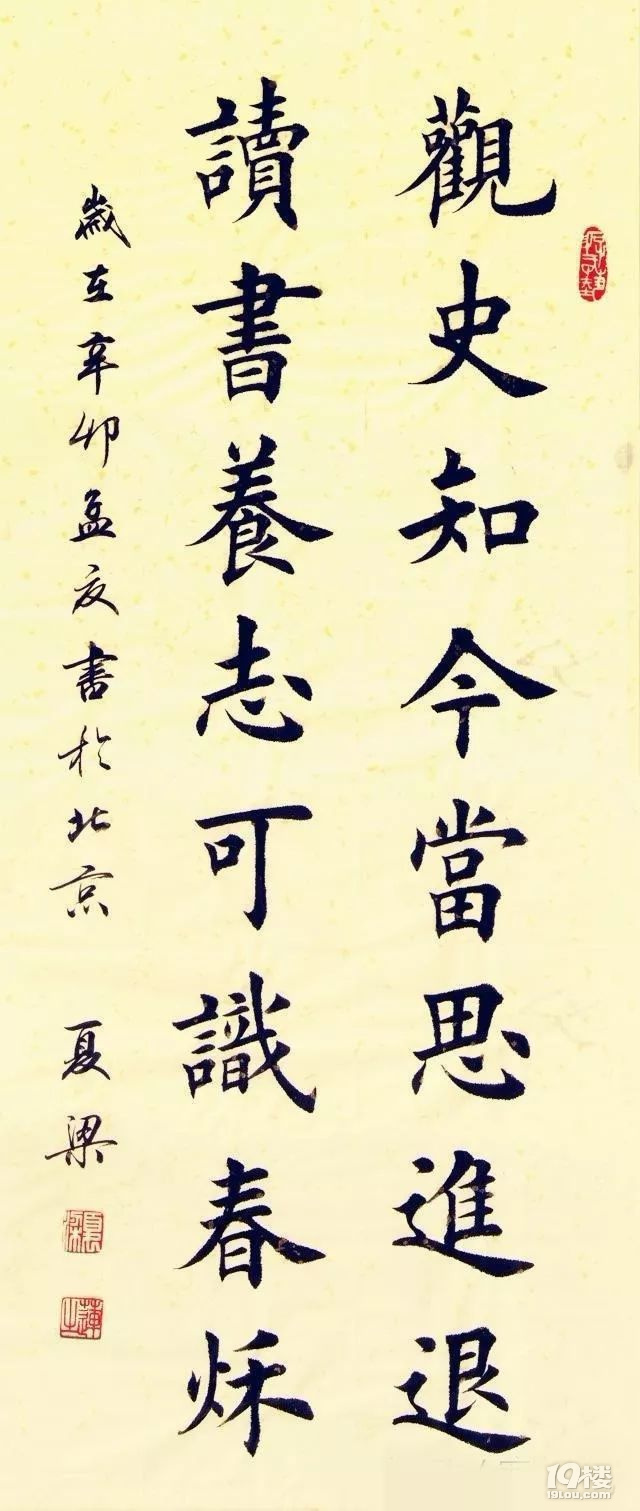 觀史知今當思進退
讀書養志可識春秌
歲在辛卯孟夏書於北京
夏梁
19楼
19lou.com